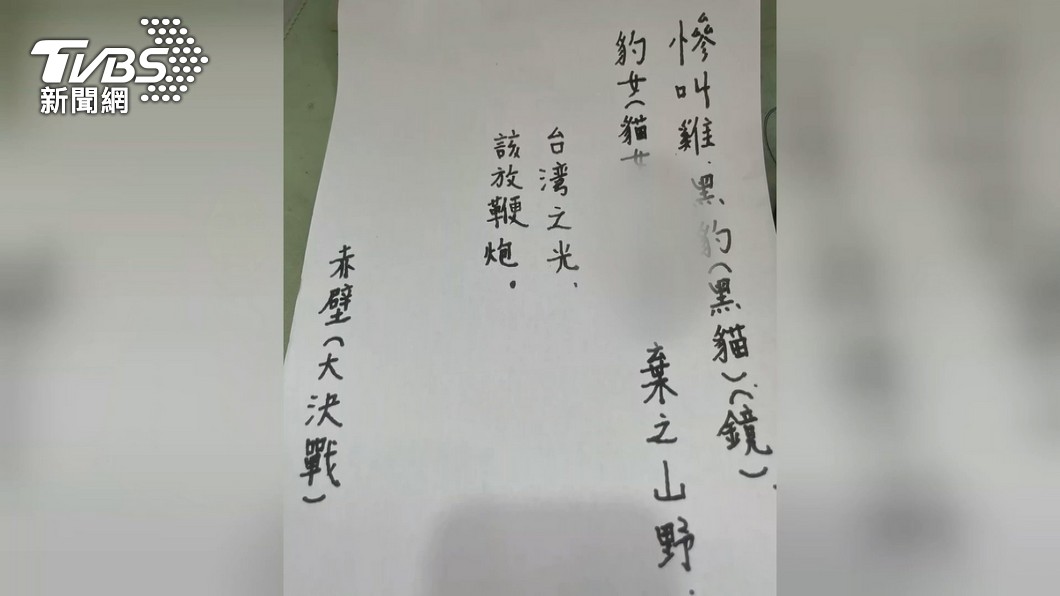 TVBS
新聞網
慘叫雞.黑豹(黑貓)(鏡).
豹女(貓女
棄之山野.
台湾之光.
該放鞭炮.
赤壁(大決戰)